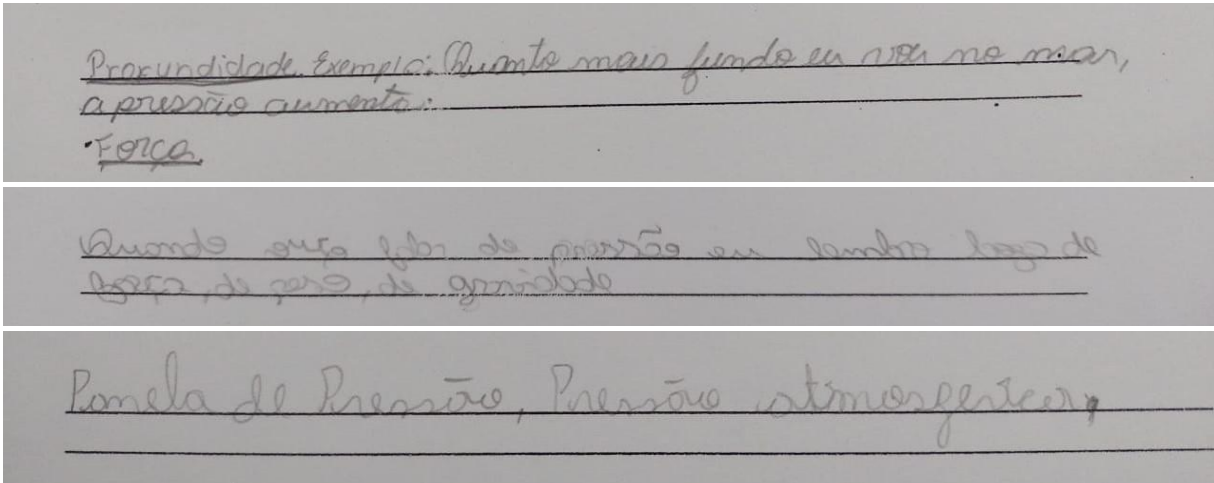 Profundidade. Exemplo: Quanto mais fundo eu vou no mar,
a pressão aumenta.
• Força.
Quando ouço falar de pressão eu lembro logo de
força, de peso, de gravidade
Panela de Pressão, Pressão atmosferica,